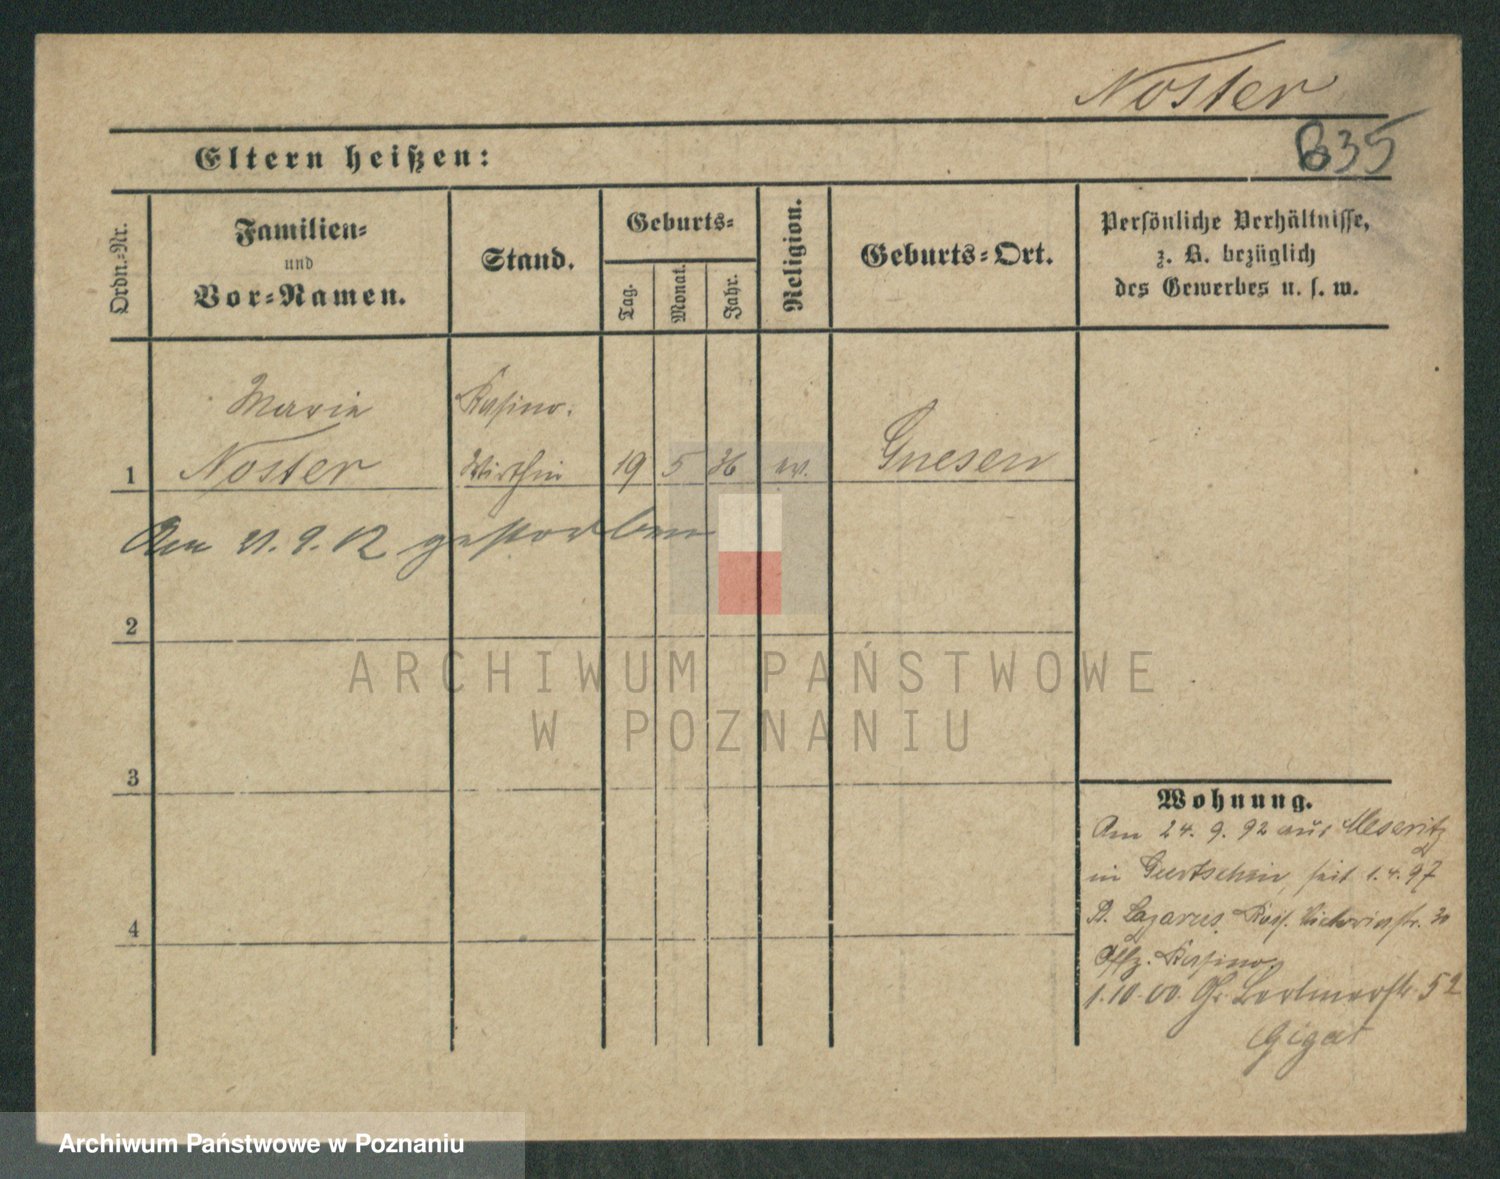 Noster
B35
Eltern heißen:
Ordn.-Nr.
Familien-
und
Vor-Namen.
Stand.
Geburts-
Tag.
Monat.
Jahr.
Religion.
Geburts-Ort.
Persönliche Verhältnisse,
z. B. bezüglich
des Gewerbes u. s. w.
Marie Kasino-
1 Noster Wirthin 19 5 36 ev. Gnesen
Am 21.9.12 gestorben
2
ARCHIWUM PAŃSTWOWE
W POZNANIU
3
Wohnung.
Am 24. 9. 92 aus Meseritz
in Gurtschin, seit 1.4.97
St. Lazarus, Victoriastr. 30
4
Offz. Kasino
1.10.00. Gr. 52
Archiwum Państwowe w Poznaniu